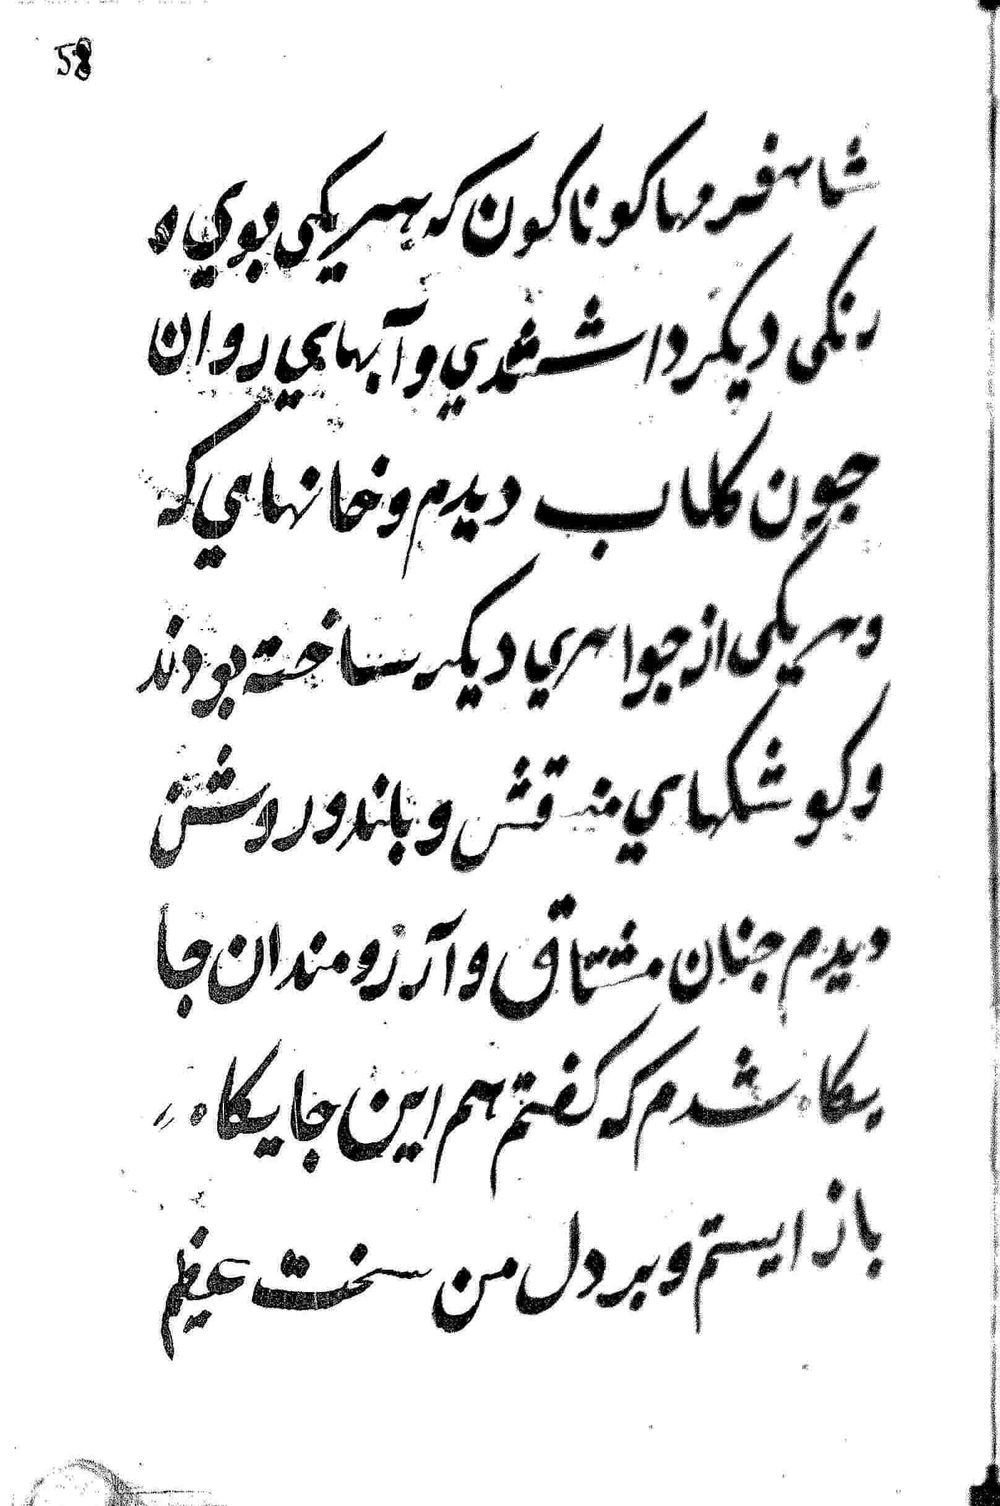 58
شاهفرمها کوناکون که هر یکی بوي
رنکی دیکر داشتندي و آبهایي روان
جون کلاب دیدم و خانهاي که
و هر یکی از جواهري دیکر ساخته بودند
و کوشکهاي منقش و بلند و روشن
دیدم جنان مشتاق و آرزومندان جا
یکاه شدم که کفتم هم این جایکاه
باز ایستم و بر دل من سخت عیظم